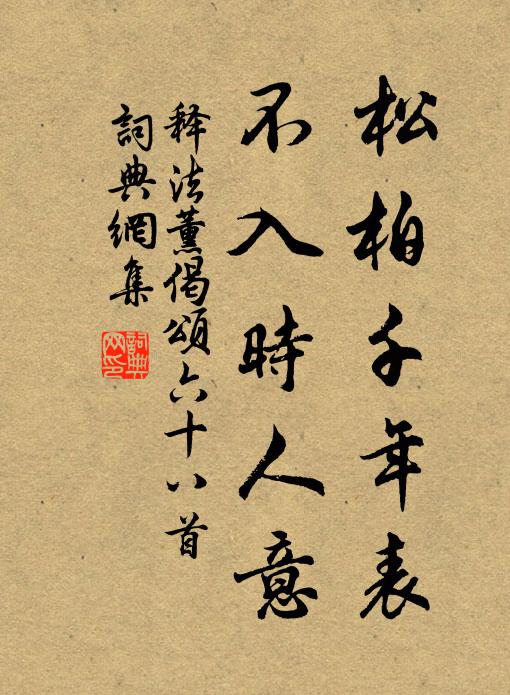 松柏千年表
不入時人意
释法薰偈頌六十八首
詞典網集
詞典网印